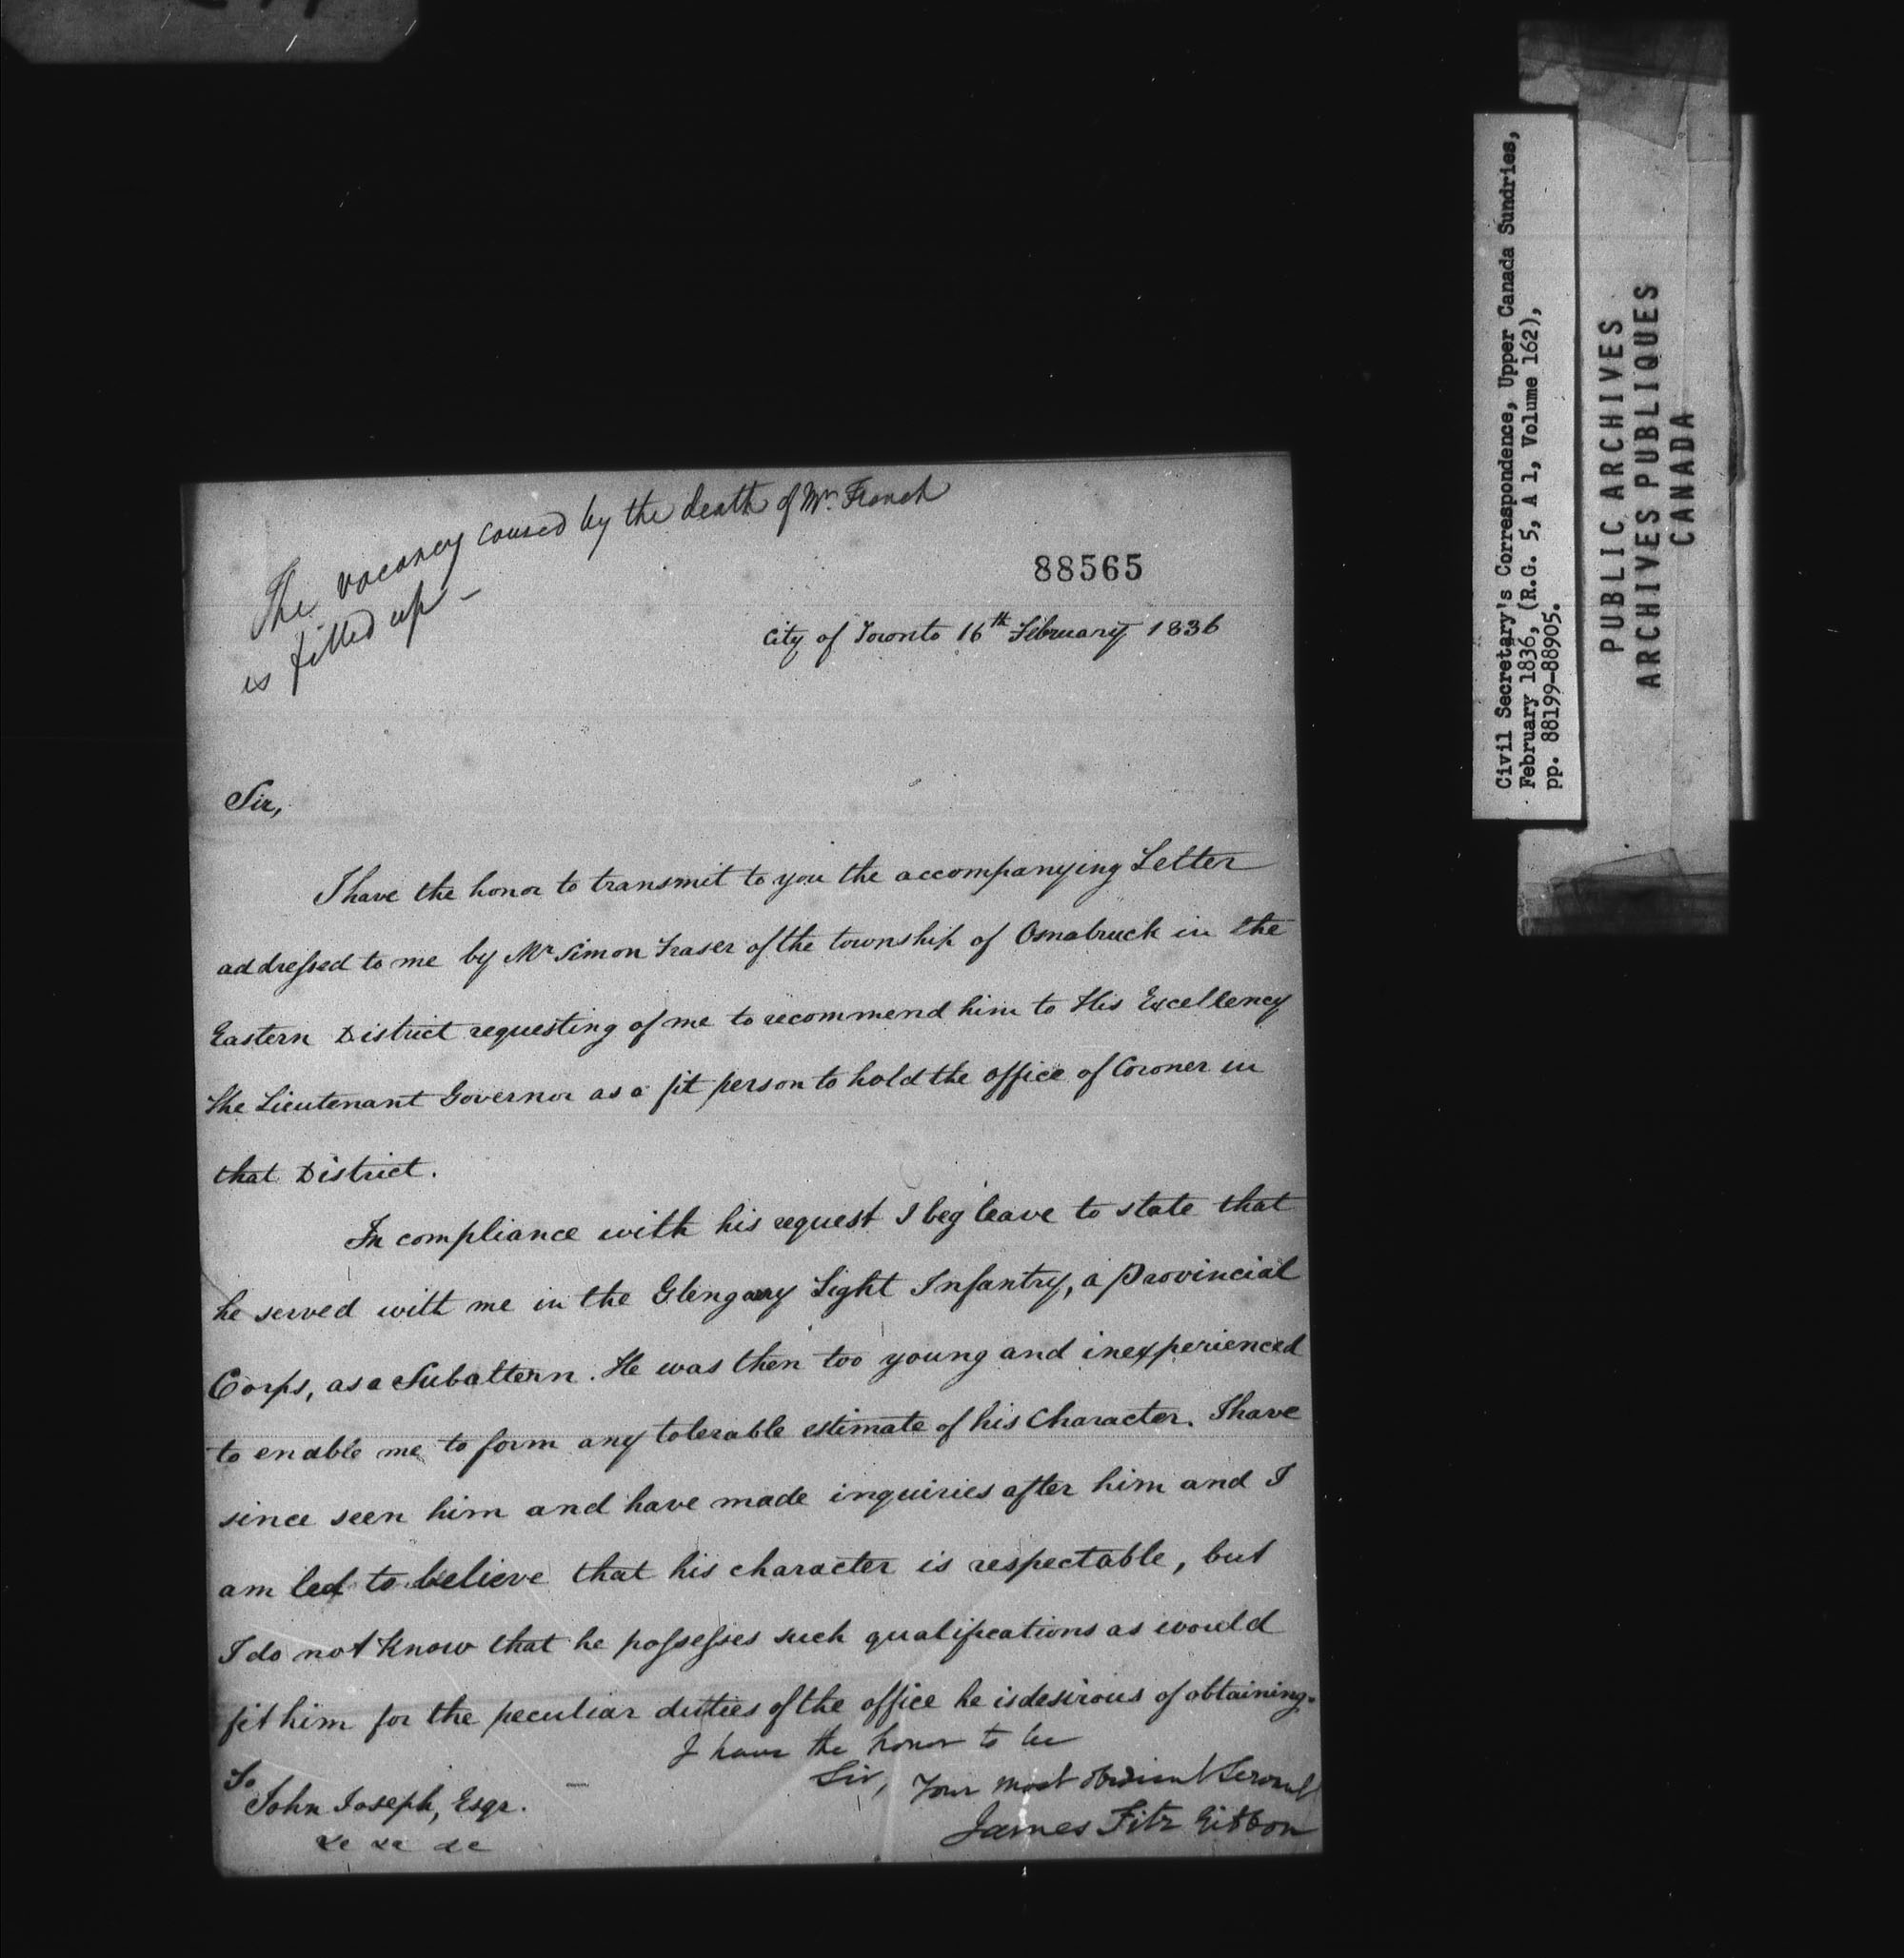 The vacancy caused by the death of Mr. French
is filled up -
88565
City of Toronto 16th February 1836
Sir,
I have the honor to transmit to you the accompanying Letter
addressed to me by Mr Simon Fraser of the township of Osnabruck in the
Eastern District requesting of me to recommend him to His Excellency
the Lieutenant Governor as a fit person to hold the office of Coroner in
that District.
In compliance with his request I beg leave to state that
he served with me in the Glengary Light Infantry, a Provincial
Corps, as a Subaltern. He was then too young and inexperienced
to enable me to form any tolerable estimate of his Character. I have
since seen him and have made inquiries after him and I
am led to believe that his character is respectable, but
I do not know that he possesses such qualifications as would
fit him for the peculiar duties of the office he is desirous of obtaining.
I have the honor to be
Sir, Your most obedient Servant
James FitzGibbon
To
John Joseph, Esqr.
&c &c &c
Civil Secretary's Correspondence, Upper Canada Sundries,
February 1836, (R.G. 5, A 1, Volume 162),
pp. 88199-88905.
PUBLIC ARCHIVES
ARCHIVES PUBLIQUES
CANADA